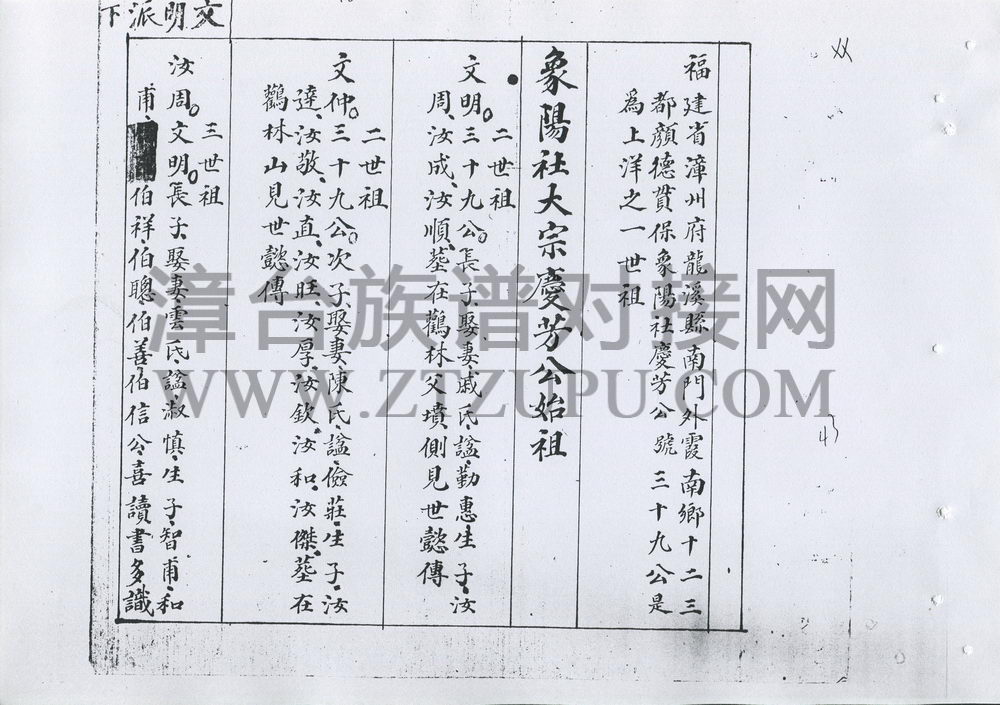 文明派下
福建省漳州府龍溪縣南門外霞南鄉十二三
都顏德貫保象陽社慶芳公號三十九公是
為上洋之一世祖
象陽社大宗慶芳公始祖
二世祖
文明。三十九公。長子、娶妻戚氏、諡、勤惠生子、汝
周、汝成、汝順、塟在鸛林父墳側見世懿傳
二世祖
文仲。三十九公。次子、娶妻陳氏、諡、儉莊、生子、汝
達、汝敬、汝直、汝旺、汝厚、汝欽、汝和、汝傑、塟在
鸛林山見世懿傳
三世祖
汝周。文明。長子、娶妻雲氏、諡淑慎、生子、智甫、和
甫、伯祥、伯聰、伯善、伯信公、喜讀書多識
漳台族谱对接网
WWW.ZTZUPU.COM